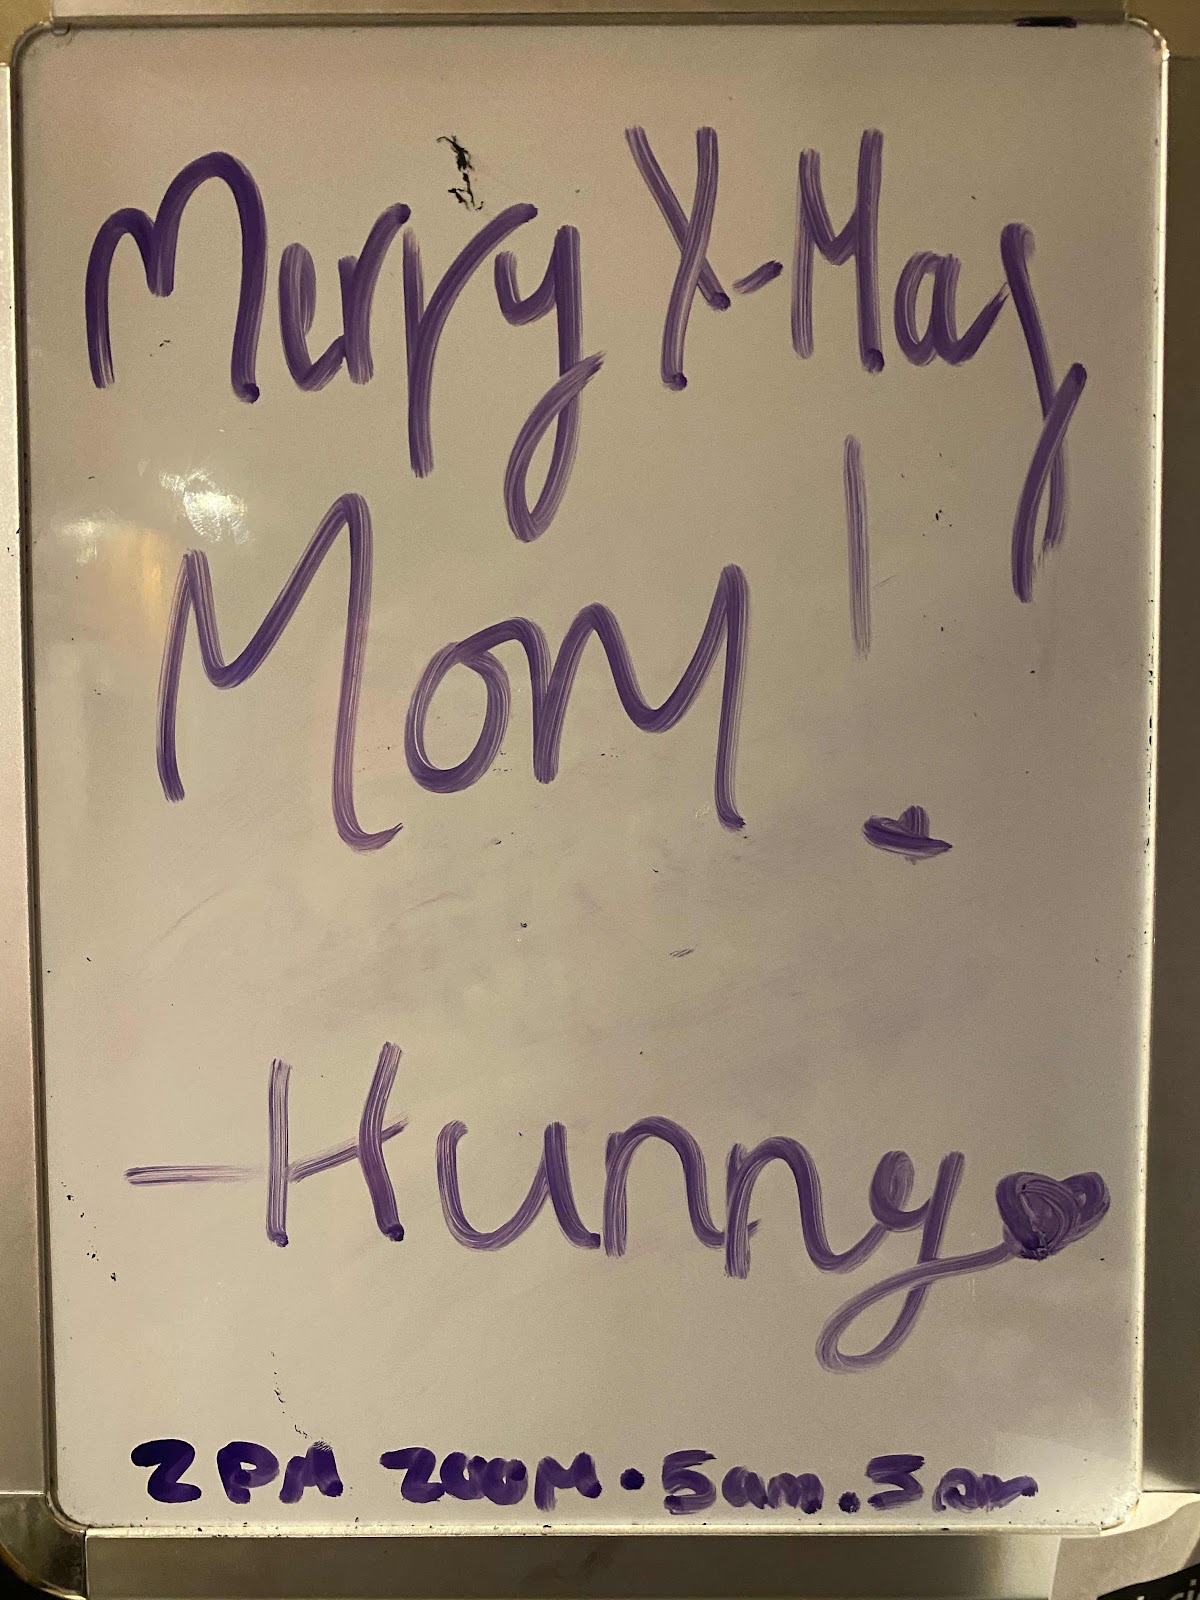 Merry X-Mas
Mom!
-Hunny
2 PM ZOOM • 5am.